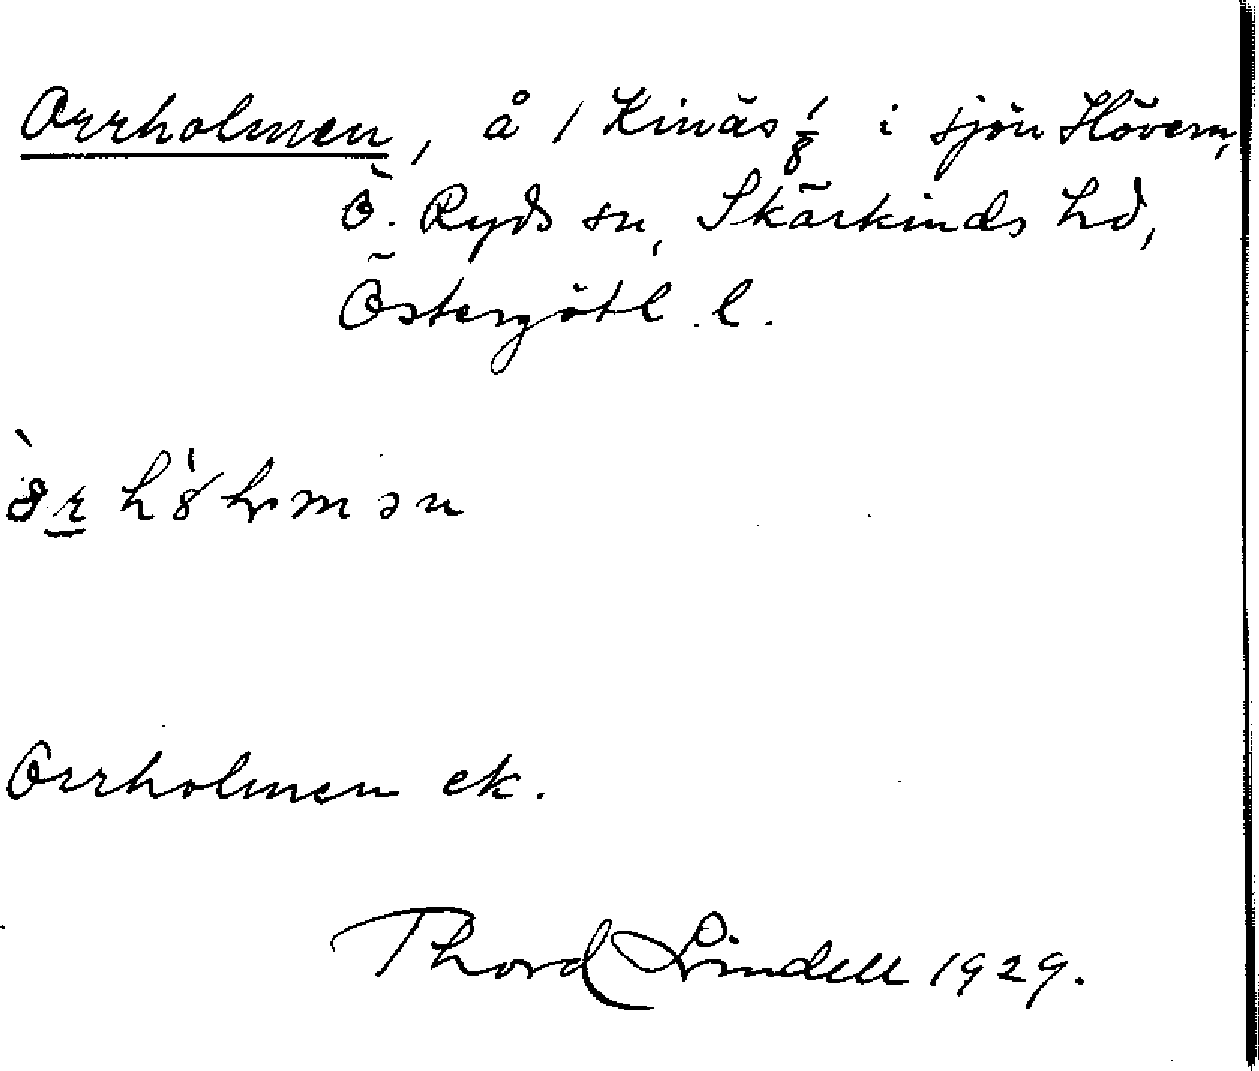 Orrholmen, å 1 Kinäs 1/8 i sjön Hövern,
Ö. Ryds sn, Skärkinds hd,
Östergötl. l.
Orrholmen ek.
Thord Lindell 1929.